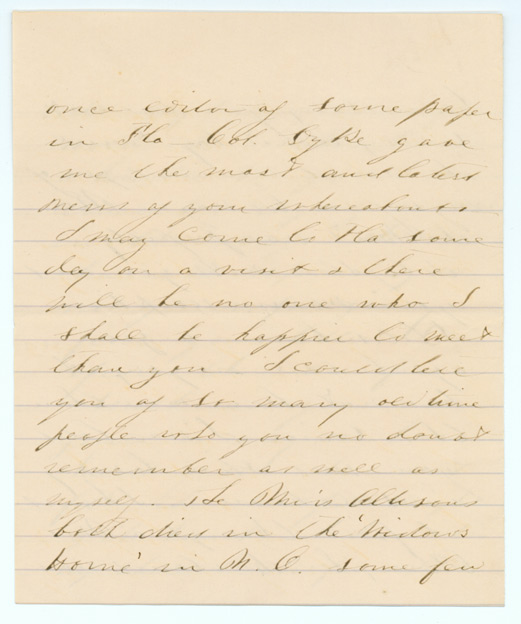 once editor of some paper
in Fla - Col. Dyke gave
me the most and latest
news of your whereabouts
I may come to Fla some
day on a visit & there
will be no one who I
shall be happier to meet
than you I could tell
you of so many old time
people who you no doubt
remember as well as
myself. The Allisons
both died in the 'Widows
Home' in N. O. some few